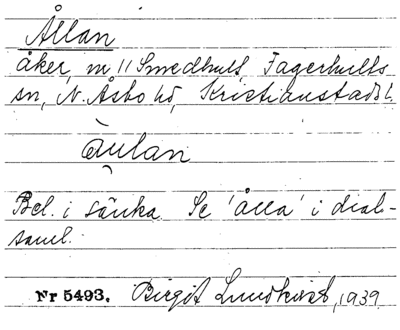 Ållan
åker, m 11 Smedhult, Fagerhults
sn, N. Åsbo hd, Kristianstads l.
åulan
Bel. i sänka. Se 'ålla' i dial-
saml.
Nr 5493. Birgit Lundkvist, 1939.